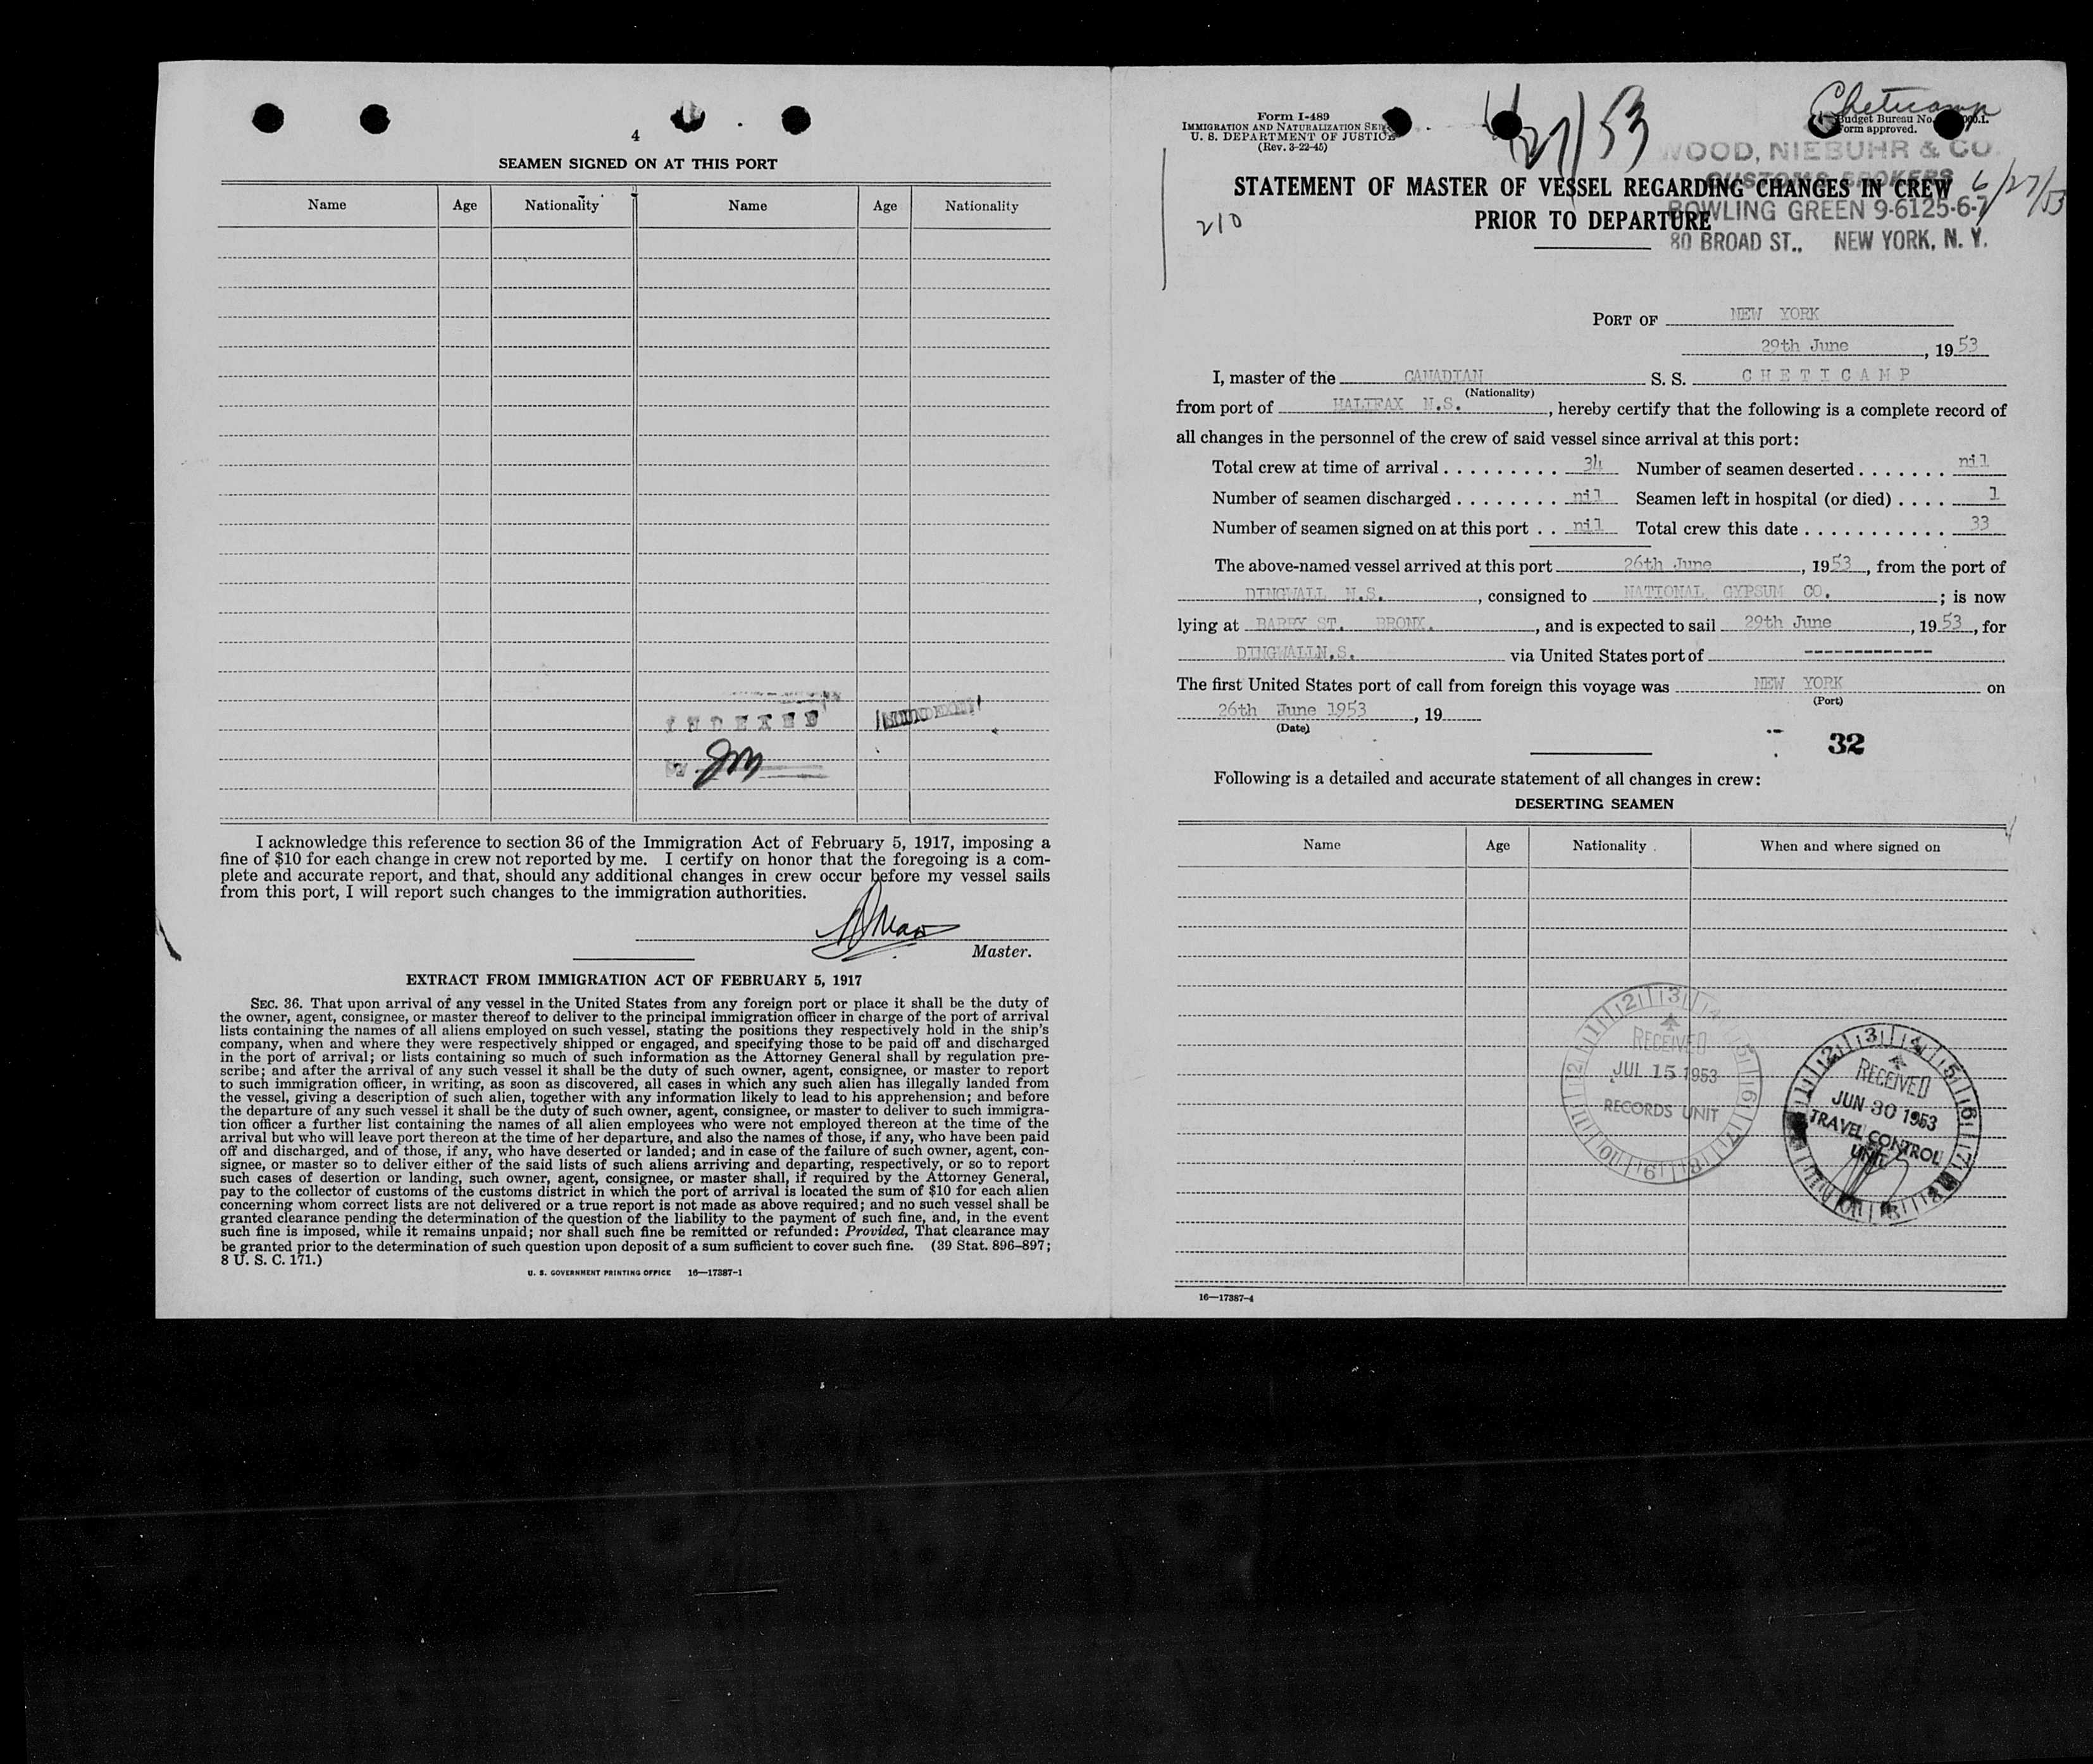 4
SEAMEN SIGNED ON AT THIS PORT
Name Age Nationality Name Age Nationality
INDEXED
I acknowledge this reference to section 36 of the Immigration Act of February 5, 1917, imposing a
fine of $10 for each change in crew not reported by me. I certify on honor that the foregoing is a com-
plete and accurate report, and that, should any additional changes in crew occur before my vessel sails
from this port, I will report such changes to the immigration authorities.
Master.
EXTRACT FROM IMMIGRATION ACT OF FEBRUARY 5, 1917
SEC. 36. That upon arrival of any vessel in the United States from any foreign port or place it shall be the duty of
the owner, agent, consignee, or master thereof to deliver to the principal immigration officer in charge of the port of arrival
lists containing the names of all aliens employed on such vessel, stating the positions they respectively hold in the ship's
company, when and where they were respectively shipped or engaged, and specifying those to be paid off and discharged
in the port of arrival; or lists containing so much of such information as the Attorney General shall by regulation pre-
scribe; and after the arrival of any such vessel it shall be the duty of such owner, agent, consignee, or master to report
to such immigration officer, in writing, as soon as discovered, all cases in which any such alien has illegally landed from
the vessel, giving a description of such alien, together with any information likely to lead to his apprehension; and before
the departure of any such vessel it shall be the duty of such owner, agent, consignee, or master to deliver to such immigra-
tion officer a further list containing the names of all alien employees who were not employed thereon at the time of the
arrival but who will leave port thereon at the time of her departure, and also the names of those, if any, who have been paid
off and discharged, and of those, if any, who have deserted or landed; and in case of the failure of such owner, agent, con-
signee, or master so to deliver either of the said lists of such aliens arriving and departing, respectively, or so to report
such cases of desertion or landing, such owner, agent, consignee, or master shall, if required by the Attorney General,
pay to the collector of customs of the customs district in which the port of arrival is located the sum of $10 for each alien
concerning whom correct lists are not delivered or a true report is not made as above required; and no such vessel shall be
granted clearance pending the determination of the question of the liability to the payment of such fine, and, in the event
such fine is imposed, while it remains unpaid; nor shall such fine be remitted or refunded: Provided, That clearance may
be granted prior to the determination of such question upon deposit of a sum sufficient to cover such fine. (39 Stat. 896–897;
8 U. S. C. 171.)
U. S. GOVERNMENT PRINTING OFFICE 16—17387-1
Form I-489
IMMIGRATION AND NATURALIZATION
U. S. DEPARTMENT OF JUSTICE
(Rev. 3-22-45)
27/53
Cheticamp
Budget Bureau No.
Form approved.
WOOD, NIEBUHR & CO.
CUSTOMS BROKERS
BOWLING GREEN 9-6125-6-7
80 BROAD ST., NEW YORK, N. Y.
6/27/53
210
STATEMENT OF MASTER OF VESSEL REGARDING CHANGES IN CREW
PRIOR TO DEPARTURE
PORT OF NEW YORK
29th June, 1953
I, master of the CANADIAN S. S. CHETICAMP
(Nationality)
from port of HALIFAX N.S., hereby certify that the following is a complete record of
all changes in the personnel of the crew of said vessel since arrival at this port:
Total crew at time of arrival . . . . . . . . . 34 Number of seamen deserted . . . . . . . nil
Number of seamen discharged . . . . . . . . nil Seamen left in hospital (or died) . . . . 1
Number of seamen signed on at this port . . nil Total crew this date . . . . . . . . . . . 33
The above-named vessel arrived at this port 26th June, 1953, from the port of
DINGWALL N.S., consigned to NATIONAL GYPSUM CO.; is now
lying at BARRY ST. BRONX., and is expected to sail 29th June, 1953, for
DINGWALL N.S. via United States port of -------------
The first United States port of call from foreign this voyage was NEW YORK on
(Port)
26th June 1953, 19
(Date)
32
Following is a detailed and accurate statement of all changes in crew:
DESERTING SEAMEN
Name Age Nationality When and where signed on
RECEIVED
JUL 15 1953
RECORDS UNIT
RECEIVED
JUN 30 1953
TRAVEL CONTROL
UNIT
16—17387-4